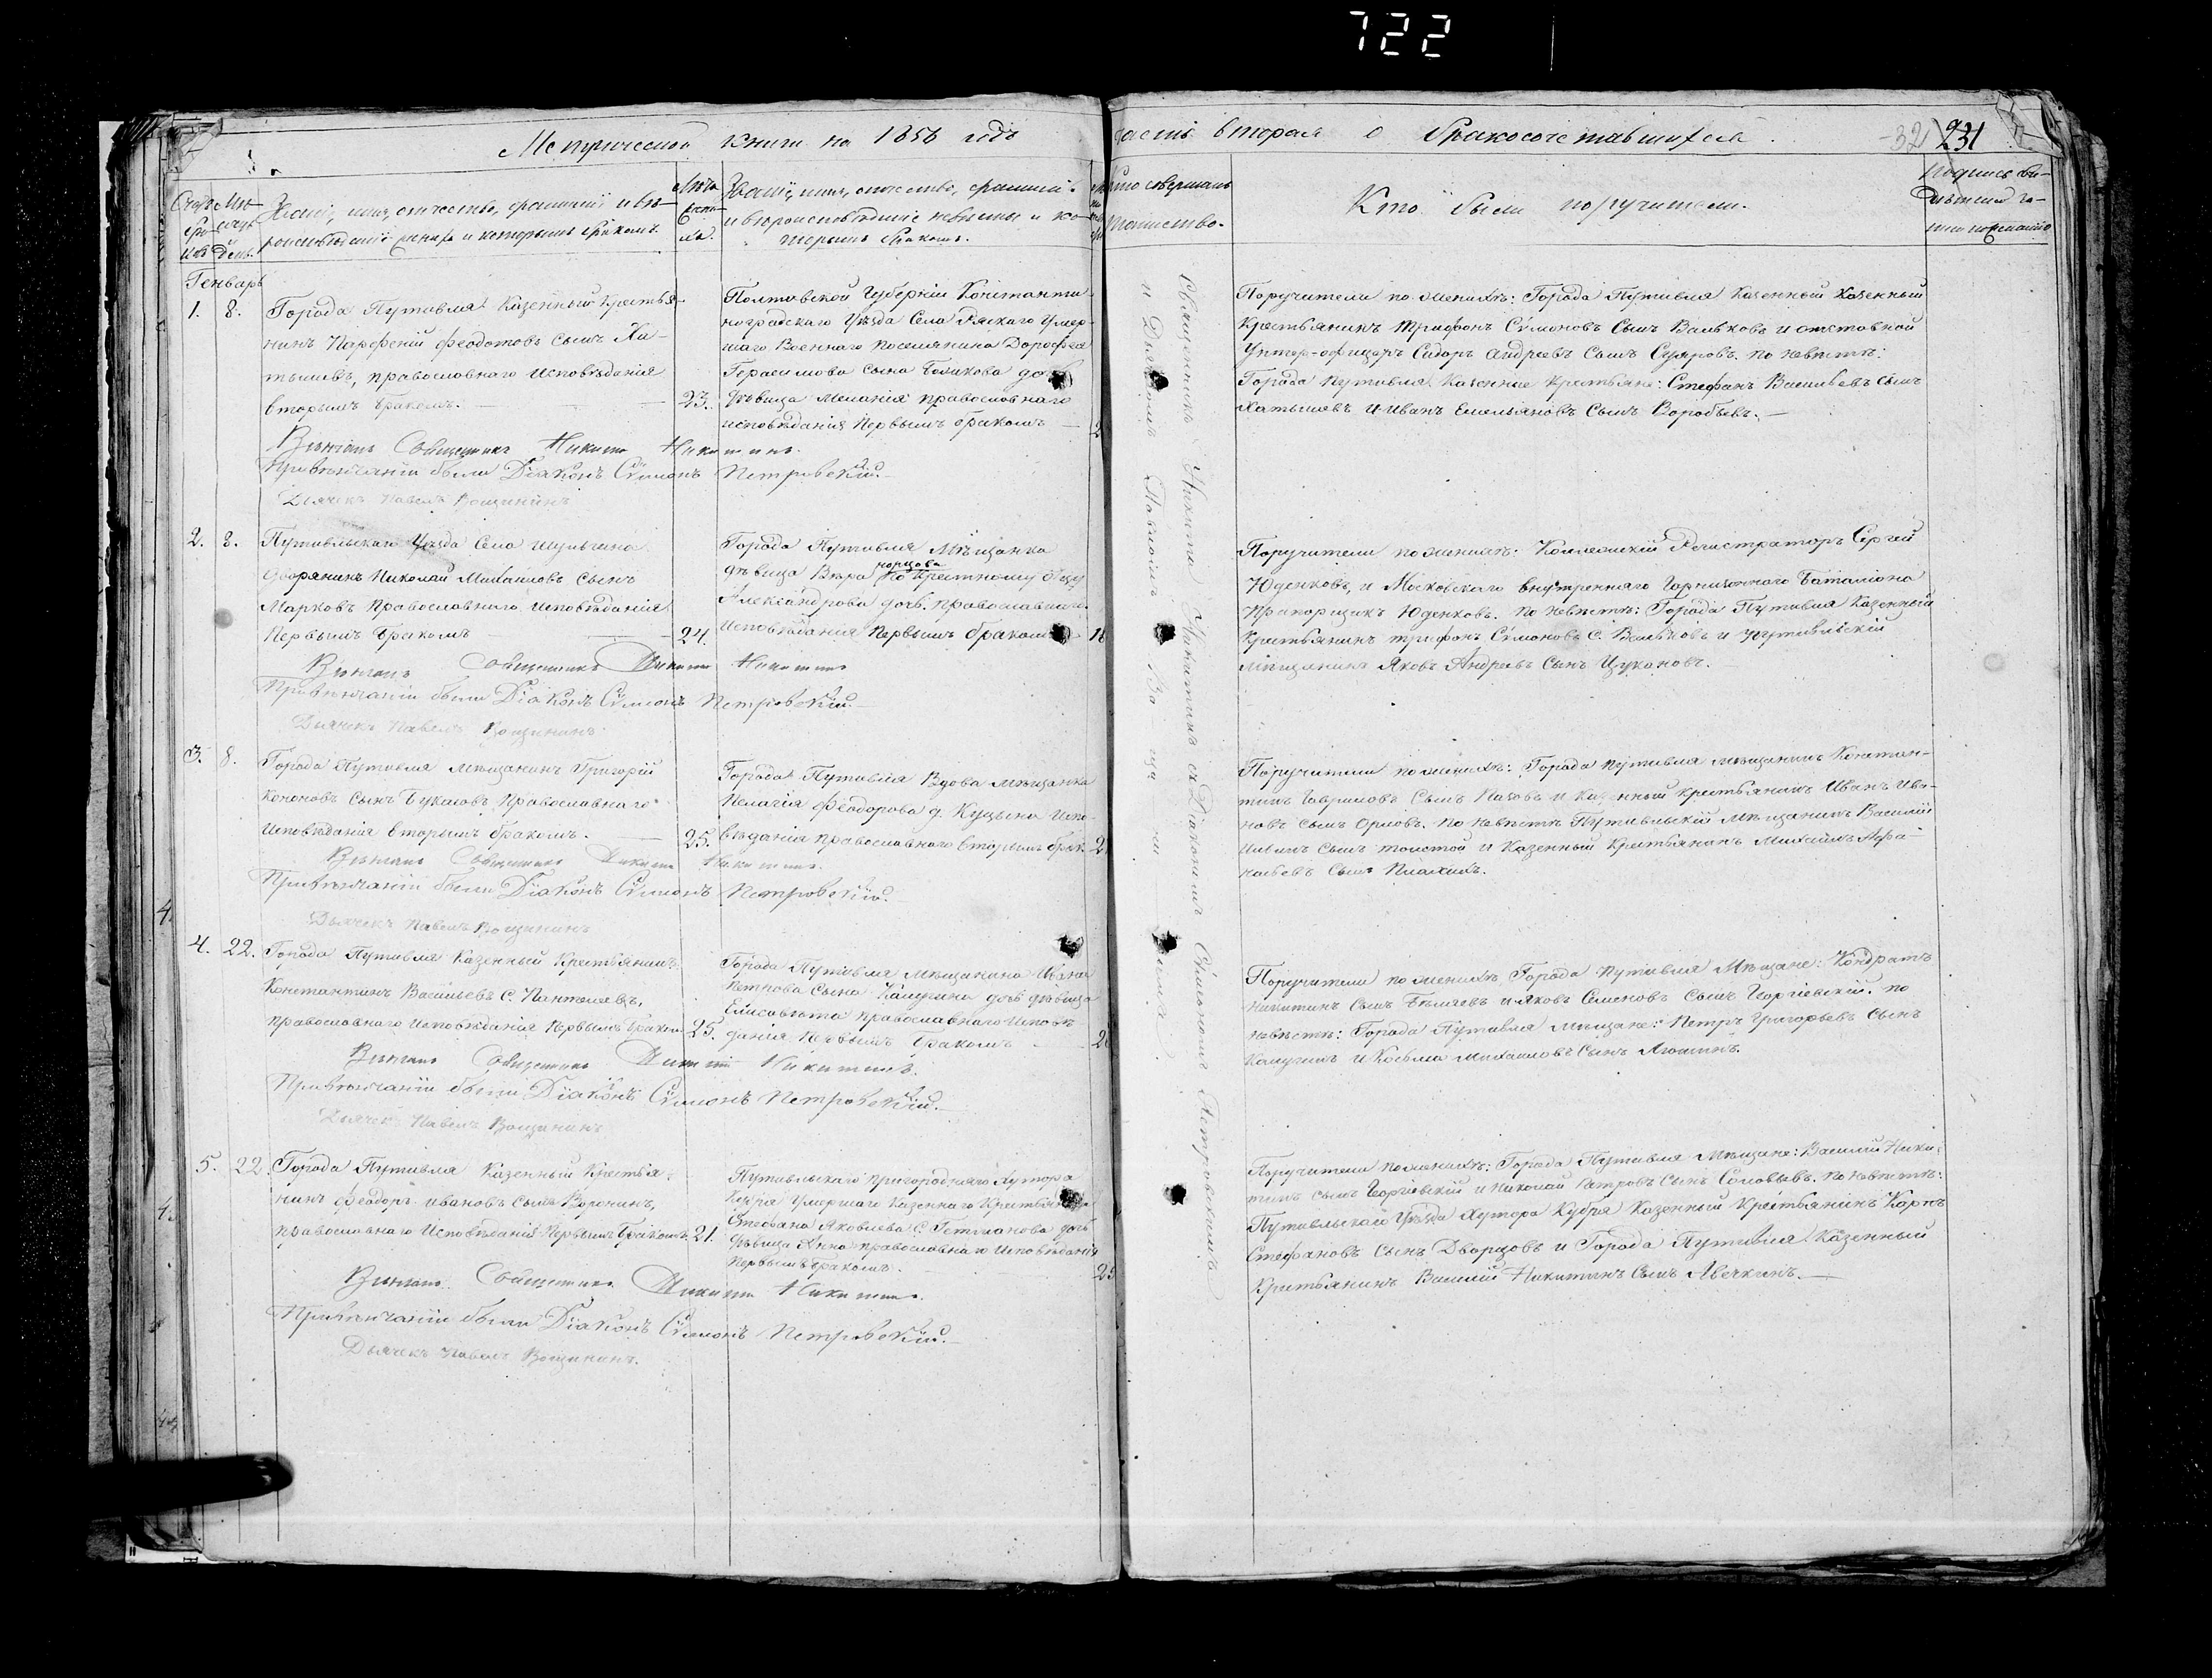 722
Метрической книги на 1858 годъ
часть вторая о бракосочетавшихся.
231
Счетъ браковъ
Мѣсяцъ День.
Званіе, имя, отчество, фамилія и вѣ-
роисповѣданіе жениха и которымъ бракомъ.
Лѣта жениха.
Званіе, имя, отчество, фамилія
и вѣроисповѣданіе невѣсты и ко-
торымъ бракомъ.
Кто совершалъ
таинство.
Кто были поручители.
Генварь
1. 8.
Города Путивля Казенный Крестья-
нинъ Парфеній Феодотовъ сынъ Ха-
тышевъ, православнаго исповѣданія
вторымъ бракомъ. 23.
Полтавской Губерніи Константи-
ноградскаго Уѣзда Села Ряскаго Умер-
шаго Военнаго поселянина Дорофея
Герасимова сына дочь
дѣвица Меланія православнаго
исповѣданія первымъ бракомъ
Вѣнчалъ Священникъ Никита Никитинъ.
При вѣнчаніи были Діаконъ Сѵмеонъ Петровскій.
Дьячекъ Павелъ Вощининъ
2. 8.
Путивльскаго Уѣзда Села
дворянинъ Николай Михайловъ сынъ
Марковъ православнаго исповѣданія
первымъ бракомъ 24.
Города Путивля Мѣщанка
дѣвица Вѣра по крестному отцу
Александрова дочь, православнаго
исповѣданія первымъ бракомъ 18
Вѣнчалъ Священникъ Никита Никитинъ
При вѣнчаніи были Діаконъ Сѵмеонъ Петровскій.
Дьячекъ Павелъ Вощининъ
3. 8.
Города Путивля мѣщанинъ Григорій
Кононовъ сынъ Православнаго
исповѣданія вторымъ бракомъ. 25.
Города Путивля Вдова мѣщанка
Пелагія Феодорова д. Куцына испо-
вѣданія православнаго вторымъ брак.
Вѣнчалъ Священникъ Никита Никитинъ.
При вѣнчаніи были Діаконъ Сѵмеонъ Петровскій.
Дьячекъ Павелъ Вощининъ
4. 22.
Города Путивля Казенный Крестьянинъ
Константинъ Васильевъ с. Пантелеевъ,
православнаго исповѣданія первымъ бракомъ 25.
Города Путивля мѣщанина Ивана
Петрова сына Калугина дочь дѣвица
Елисавета православнаго исповѣ-
данія первымъ бракомъ
Вѣнчалъ Священникъ Никита Никитинъ.
При вѣнчаніи были Діаконъ Сѵмеонъ Петровскій.
Дьячекъ Павелъ Вощининъ
5. 22
Города Путивля Казенный Крестья-
нинъ Феодоръ Ивановъ сынъ Воронинъ,
православнаго исповѣданія первымъ бракомъ 21.
Путивльскаго пригороднаго Хутора
Кубря Умершаго Казеннаго Крестьянина
Стефана Яковлева с. Гетманова дочь
дѣвица Анна православнаго исповѣданія
первымъ бракомъ. 25
Вѣнчалъ Священникъ Никита Никитинъ.
При вѣнчаніи были Діаконъ Сѵмеонъ Петровскій.
Дьячекъ Павелъ Вощининъ.
Священникъ Никита Никитинъ съ Діакономъ Сѵмеономъ Петровскимъ
и Дьячкомъ Павломъ
Поручители по женихѣ: Города Путивля Казенный Казенный
Крестьянинъ Трифонъ Сѵмоновъ сынъ Вальковъ и отставной
Унтер-офицеръ Сидоръ Андреевъ сынъ По невѣстѣ:
Города Путивля Казенные Крестьяне: Стефанъ Васильевъ сынъ
Хатышевъ и Иванъ Емельяновъ сынъ Воробьевъ.
Поручители по женихѣ: Коллежскій Регистраторъ Сергей
Юденковъ, и Московскаго внутренняго Гарнизоннаго Баталіона
Прапорщикъ Юденковъ. По невѣстѣ: Города Путивля Казенный
Крестьянинъ Трифонъ Сѵмоновъ с. Вальковъ и Путивльскій
мѣщанинъ Яковъ Андреевъ сынъ Цукановъ.
Поручители по женихѣ: Города Путивля мѣщанинъ Констан-
тинъ Гавриловъ сынъ и Казенный крестьянинъ Иванъ Ива-
новъ сынъ Орловъ. По невѣстѣ Путивльскій мѣщанинъ Василій
сынъ Толстой и Казенный Крестьянинъ Михаилъ Афа-
насьевъ сынъ
Поручители по женихѣ Города Путивля Мѣщане: Кондратъ
Никитинъ сынъ Бѣляевъ и Яковъ Семеновъ сынъ Георгіевскій. по
невѣстѣ: Города Путивля мѣщане: Петръ Григорьевъ сынъ
Калугинъ и Косьма Михаиловъ сынъ
Поручители по женихѣ: Города Путивля Мѣщане: Василій Ники-
тинъ сынъ Георгіевскій и Николай Петровъ сынъ Соловьевъ. По невѣстѣ:
Путивльскаго Уѣзда Хутора Кубря Казенный Крестьянинъ Карпъ
Стефановъ сынъ Дворцовъ и Города Путивля Казенный
Крестьянинъ Василій Никитинъ сынъ Авечкинъ.